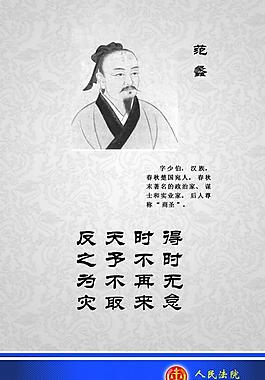 范蠡
字少伯，汉族，
春秋楚国宛人。春秋
末著名的政治家、谋
士和实业家。后人尊
称“商圣”。
得时无怠
时不再来
天予不取
反之为灾
人民法院